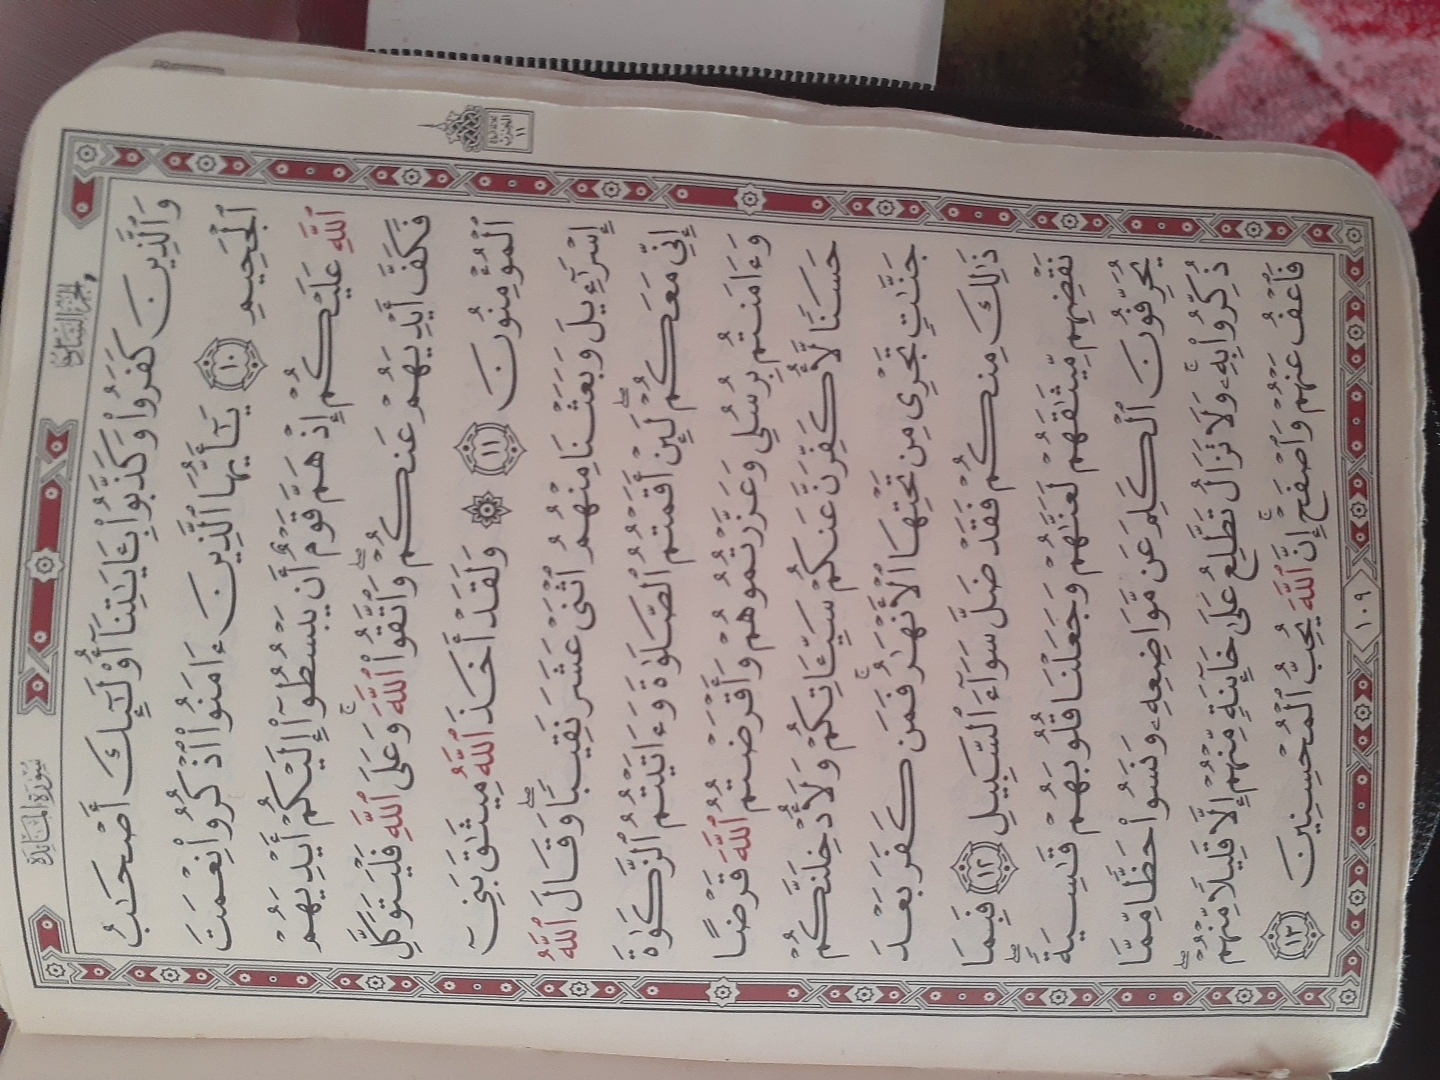 سورة المائدة
الجزء السادس
وَٱلَّذِينَ كَفَرُواْ وَكَذَّبُواْ بِـَٔايَٰتِنَآ أُوْلَٰٓئِكَ أَصْحَٰبُ
ٱلْجَحِيمِ ١٠ يَٰٓأَيُّهَا ٱلَّذِينَ ءَامَنُواْ ٱذْكُرُواْ نِعْمَتَ
ٱللَّهِ عَلَيْكُمْ إِذْ هَمَّ قَوْمٌ أَن يَبْسُطُوٓاْ إِلَيْكُمْ أَيْدِيَهُمْ
فَكَفَّ أَيْدِيَهُمْ عَنكُمْۖ وَٱتَّقُواْ ٱللَّهَۚ وَعَلَى ٱللَّهِ فَلْيَتَوَكَّلِ
ٱلْمُؤْمِنُونَ ١١ ۞ وَلَقَدْ أَخَذَ ٱللَّهُ مِيثَٰقَ بَنِيٓ
إِسْرَٰٓءِيلَ وَبَعَثْنَا مِنْهُمُ ٱثْنَيْ عَشَرَ نَقِيبًاۖ وَقَالَ ٱللَّهُ
إِنِّي مَعَكُمْۖ لَئِنْ أَقَمْتُمُ ٱلصَّلَوٰةَ وَءَاتَيْتُمُ ٱلزَّكَوٰةَ
وَءَامَنتُم بِرُسُلِي وَعَزَّرْتُمُوهُمْ وَأَقْرَضْتُمُ ٱللَّهَ قَرْضًا
حَسَنًا لَّأُكَفِّرَنَّ عَنكُمْ سَيِّـَٔاتِكُمْ وَلَأُدْخِلَنَّكُمْ
جَنَّٰتٍ تَجْرِي مِن تَحْتِهَا ٱلْأَنْهَٰرُۚ فَمَن كَفَرَ بَعْدَ
ذَٰلِكَ مِنكُمْ فَقَدْ ضَلَّ سَوَآءَ ٱلسَّبِيلِ ١٢ فَبِمَا
نَقْضِهِم مِّيثَٰقَهُمْ لَعَنَّٰهُمْ وَجَعَلْنَا قُلُوبَهُمْ قَٰسِيَةًۖ
يُحَرِّفُونَ ٱلْكَلِمَ عَن مَّوَاضِعِهِۦ وَنَسُواْ حَظًّا مِّمَّا
ذُكِّرُواْ بِهِۦۚ وَلَا تَزَالُ تَطَّلِعُ عَلَىٰ خَآئِنَةٍ مِّنْهُمْ إِلَّا قَلِيلًا مِّنْهُمْۖ
فَٱعْفُ عَنْهُمْ وَٱصْفَحْۚ إِنَّ ٱللَّهَ يُحِبُّ ٱلْمُحْسِنِينَ ١٣
١٠٩